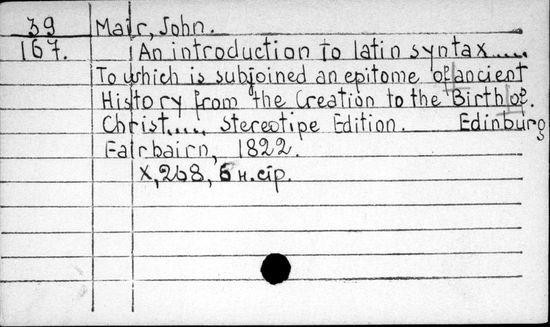 39 Mair, John.
167. An introduction to latin syntax.....
To which is subjoined an epitome of ancient
History from the Creation to the Birth of.
Christ..... stereotipe Edition. Edinburg
Fairbairn, 1822.
X, 268, 6 н.стр.